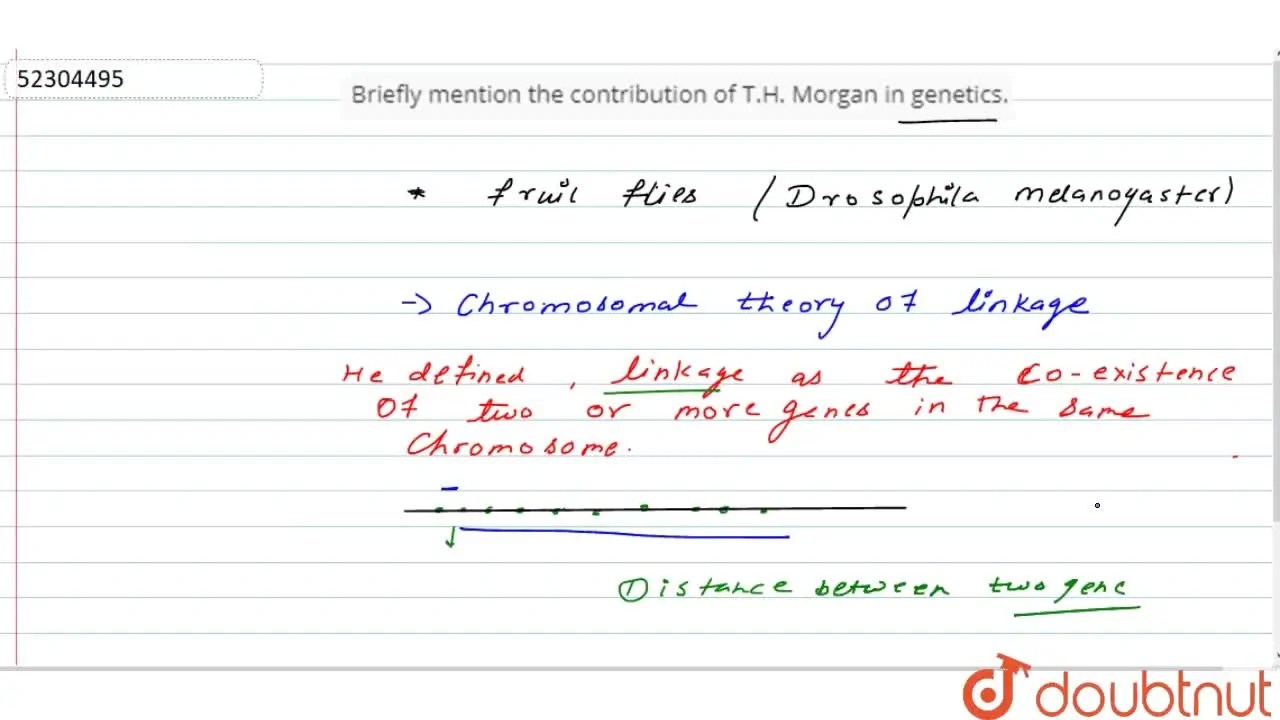 52304495
Briefly mention the contribution of T.H. Morgan in genetics.
* fruit flies (Drosophila melanogaster)
→ Chromosomal theory of linkage
He defined, linkage as the co-existence
of two or more genes in the same
Chromosome.
Distance between two gene
doubtnut